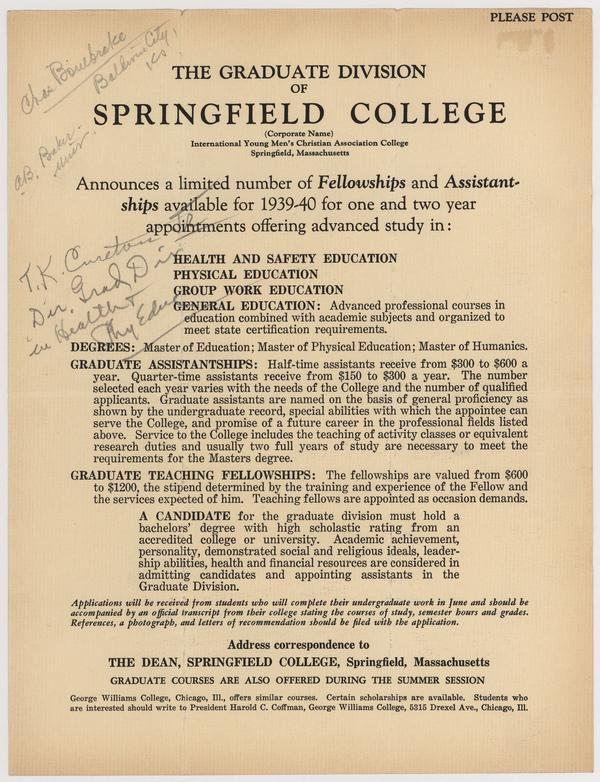 PLEASE POST
Chas Bonebrake
Baldwin City,
Ks!
AB. Baker
Univ.
THE GRADUATE DIVISION
OF
SPRINGFIELD COLLEGE
(Corporate Name)
International Young Men's Christian Association College
Springfield, Massachusetts
Announces a limited number of Fellowships and Assistant-
ships available for 1939-40 for one and two year
appointments offering advanced study in:
T.K. Cureton Jr
Dir. Grad Div
in Health &
Phy Educ
HEALTH AND SAFETY EDUCATION
PHYSICAL EDUCATION
GROUP WORK EDUCATION
GENERAL EDUCATION: Advanced professional courses in
education combined with academic subjects and organized to
meet state certification requirements.
DEGREES: Master of Education; Master of Physical Education; Master of Humanics.
GRADUATE ASSISTANTSHIPS: Half-time assistants receive from $300 to $600 a
year. Quarter-time assistants receive from $150 to $300 a year. The number
selected each year varies with the needs of the College and the number of qualified
applicants. Graduate assistants are named on the basis of general proficiency as
shown by the undergraduate record, special abilities with which the appointee can
serve the College, and promise of a future career in the professional fields listed
above. Service to the College includes the teaching of activity classes or equivalent
research duties and usually two full years of study are necessary to meet the
requirements for the Masters degree.
GRADUATE TEACHING FELLOWSHIPS: The fellowships are valued from $600
to $1200, the stipend determined by the training and experience of the Fellow and
the services expected of him. Teaching fellows are appointed as occasion demands.
A CANDIDATE for the graduate division must hold a
bachelors' degree with high scholastic rating from an
accredited college or university. Academic achievement,
personality, demonstrated social and religious ideals, leader-
ship abilities, health and financial resources are considered in
admitting candidates and appointing assistants in the
Graduate Division.
Applications will be received from students who will complete their undergraduate work in June and should be
accompanied by an official transcript from their college stating the courses of study, semester hours and grades.
References, a photograph, and letters of recommendation should be filed with the application.
Address correspondence to
THE DEAN, SPRINGFIELD COLLEGE, Springfield, Massachusetts
GRADUATE COURSES ARE ALSO OFFERED DURING THE SUMMER SESSION
George Williams College, Chicago, Ill., offers similar courses. Certain scholarships are available. Students who
are interested should write to President Harold C. Coffman, George Williams College, 5315 Drexel Ave., Chicago, Ill.